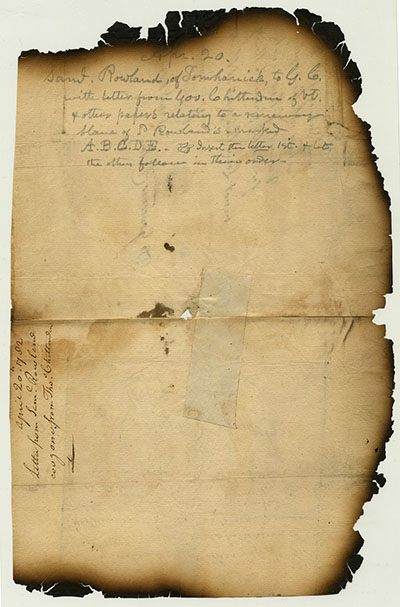 Apr. 20.
Saml. Rowland, of Tomhanick, to G. C.
with letter from Gov. Chittenden of Vt.
& other papers relating to a runaway
Slave of S. Rowland's - marked
A. B. C. D. E. - Insert this letter, 1st. & let
the others follow in their order -
April 20th 1782
letter from Saml. Rowland
cov'g one from Tho. Chittenden